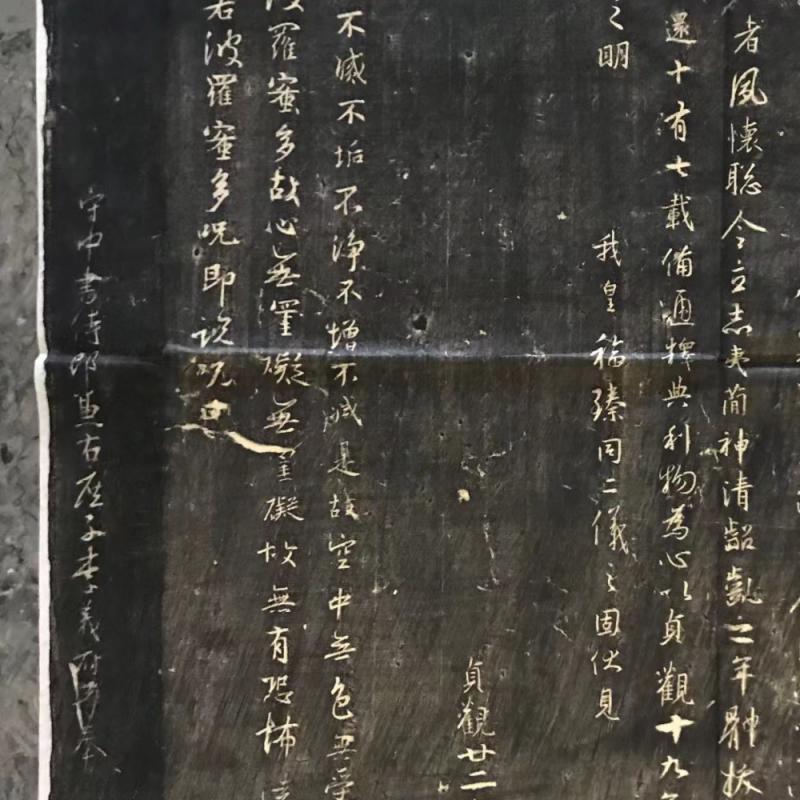 者風懷聡令立志夷簡神清齠齔之年體拔
還十有七載備通釋典利物為心以貞觀十九年
之明
我皇福臻同二儀之固伏見
貞觀廿二
不滅不垢不淨不增不減是故空中無色無受
波羅蜜多故心無罣礙無罣礙故無有恐怖
若波羅蜜多呪即說呪曰
守中書侍郎兼右庶子李義府奉